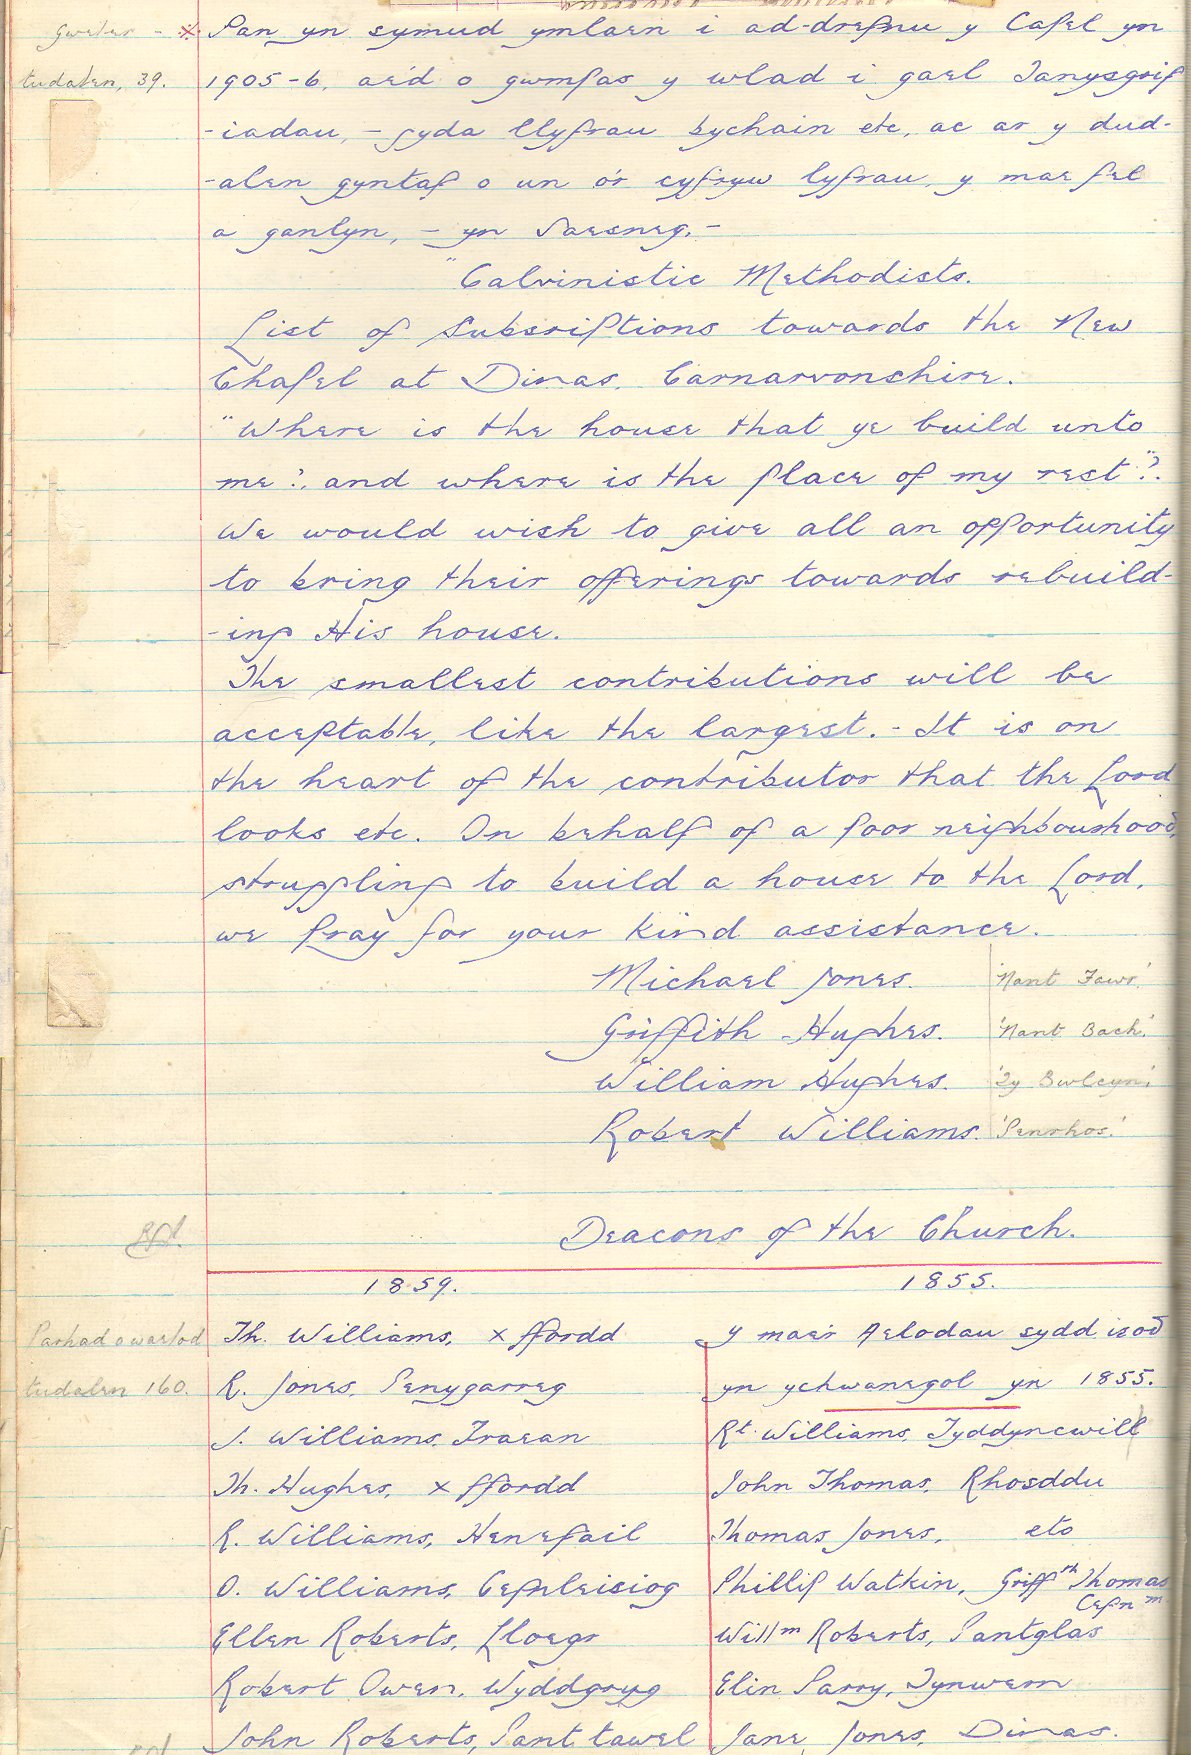 Gweler - × Pan yn symud ymlaen i ad-drefnu y Capel yn
tudalen, 39. 1905-6, aed o gwmpas y wlad i gael Tanysgrif
-iadau, - gyda llyfrau bychain etc, ac ar y dud-
-alen gyntaf o un o'r cyfryw lyfrau, y mae fel
a ganlyn, - yn Saesneg. -
"Calvinistic Methodists.
List of Subscriptions towards the New
Chapel at Dinas. Carnarvonshire.
"Where is the house that ye build unto
me?. and where is the place of my rest"?.
We would wish to give all an opportunity
to bring their offerings towards rebuild-
-ing His house.
The smallest contributions will be
acceptable, like the largest. - It is on
the heart of the contributor that the Lord
looks etc. On behalf of a poor neighbourhood,
struggling to build a house to the Lord,
we pray for your kind assistance.
Michael Jones. 'Nant Fawr.'
Griffith Hughes. 'Nant Bach.'
William Hughes. 'Ty Bwlcyn'.
Robert Williams. 'Penrhos.'
Deacons of the Church.
1859. 1855.
Parhad o waelod Th. Williams, × ffordd Y mae'r Aelodau sydd isod
tudalen 160. R. Jones, Penygarreg yn ychwanegol yn 1855.
J. Williams, Traean Rt. Williams, Tyddyncwill
Th. Hughes, × ffordd John Thomas, Rhosddu
R. Williams, Henefail Thomas Jones, eto
O. Williams, Cefnleisiog Phillip Watkin, Griffth Thomas Cefn m
Ellen Roberts, Lloegr Willm Roberts, Pantglas
Robert Owen, Wyddgrug Elin Parry, Tynwern
John Roberts, Pant tawel Jane Jones, Dinas.